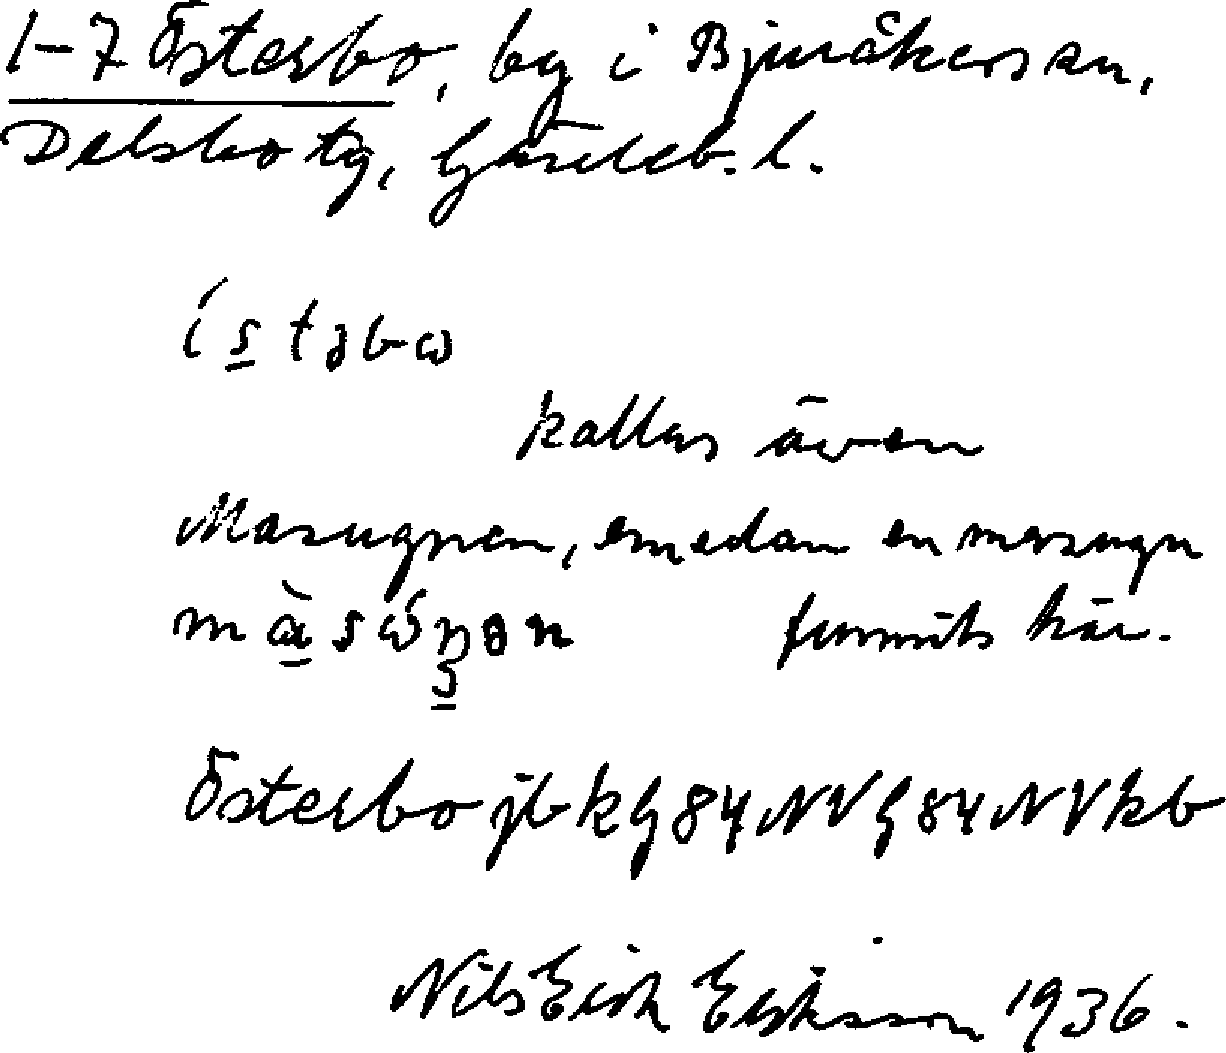 1-7 Österbo, by i Bjuråkers sn,
Delsbo tg, Gävleb. l.
kallas även
Masugnen, emedan en masugn
funnits här.
Österbo jb k G 84 NV G 84 NV kb
Nils Erik Eriksson 1936.